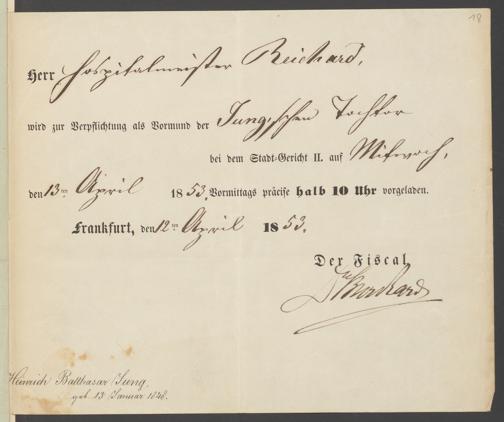 18
Herr Hospitalmeister Reichard,
wird zur Verpflichtung als Vormund der Jung'schen Tochter
bei dem Stadt-Gericht II. auf Mittwoch,
den 13ten April 1853, Vormittags präcise halb 10 Uhr vorgeladen.
Frankfurt, den 12ten April 1853.
Der Fiscal,
Dr Borchard
Heinrich Balthasar Jung.
geb. 13 Januar 1848.